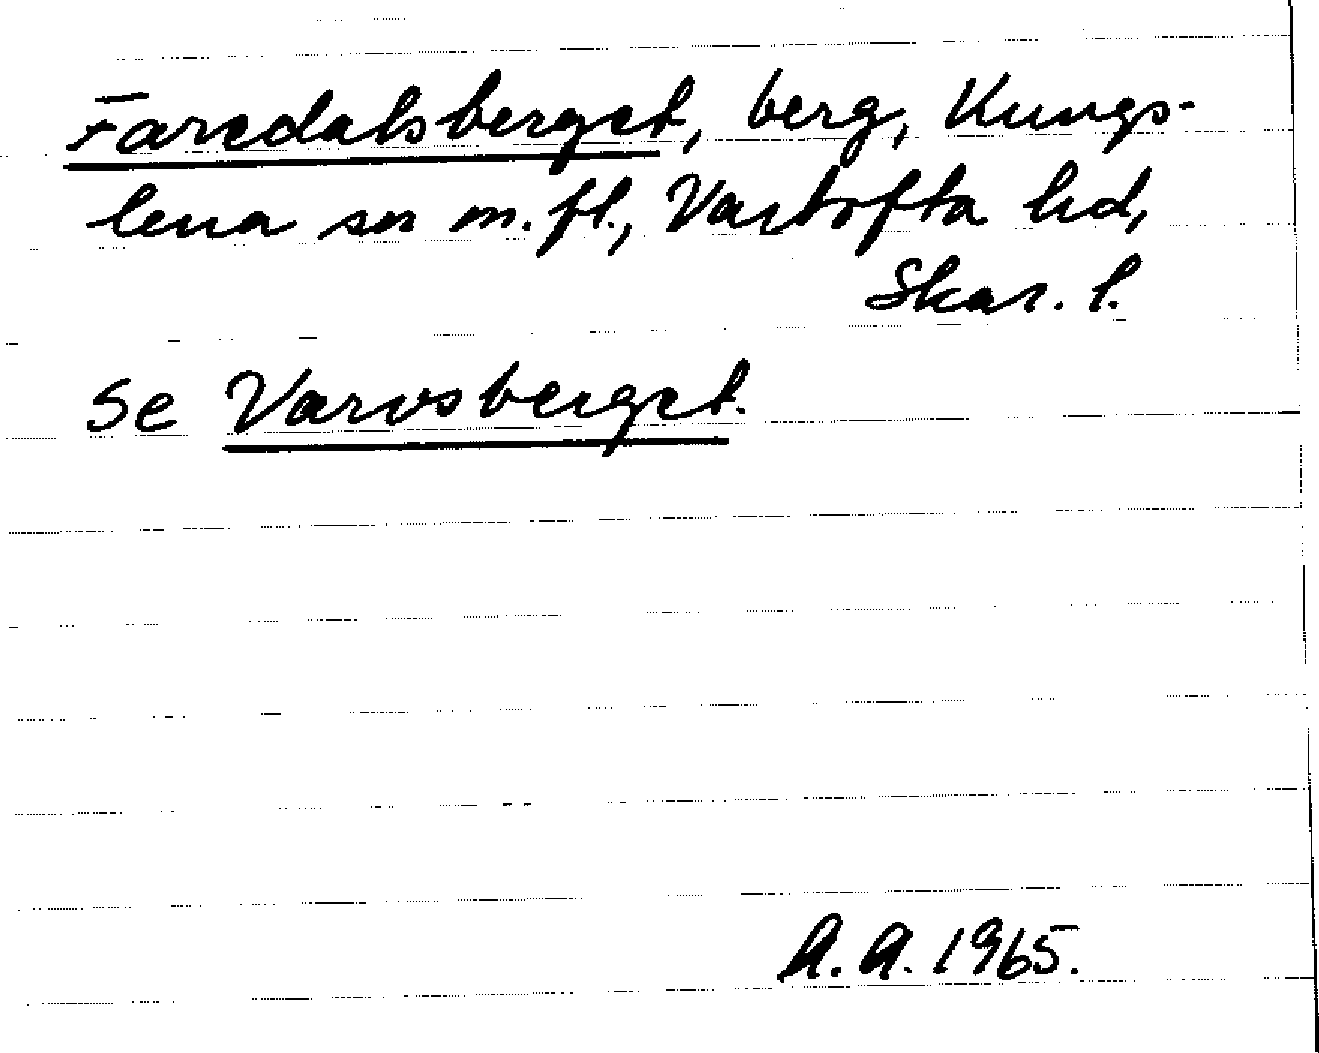 Faredalsberget, berg, Kungs-
lena sn m.fl., Vartofta hd,
Skar. l.
Se Varvsberget.
A.A. 1965.